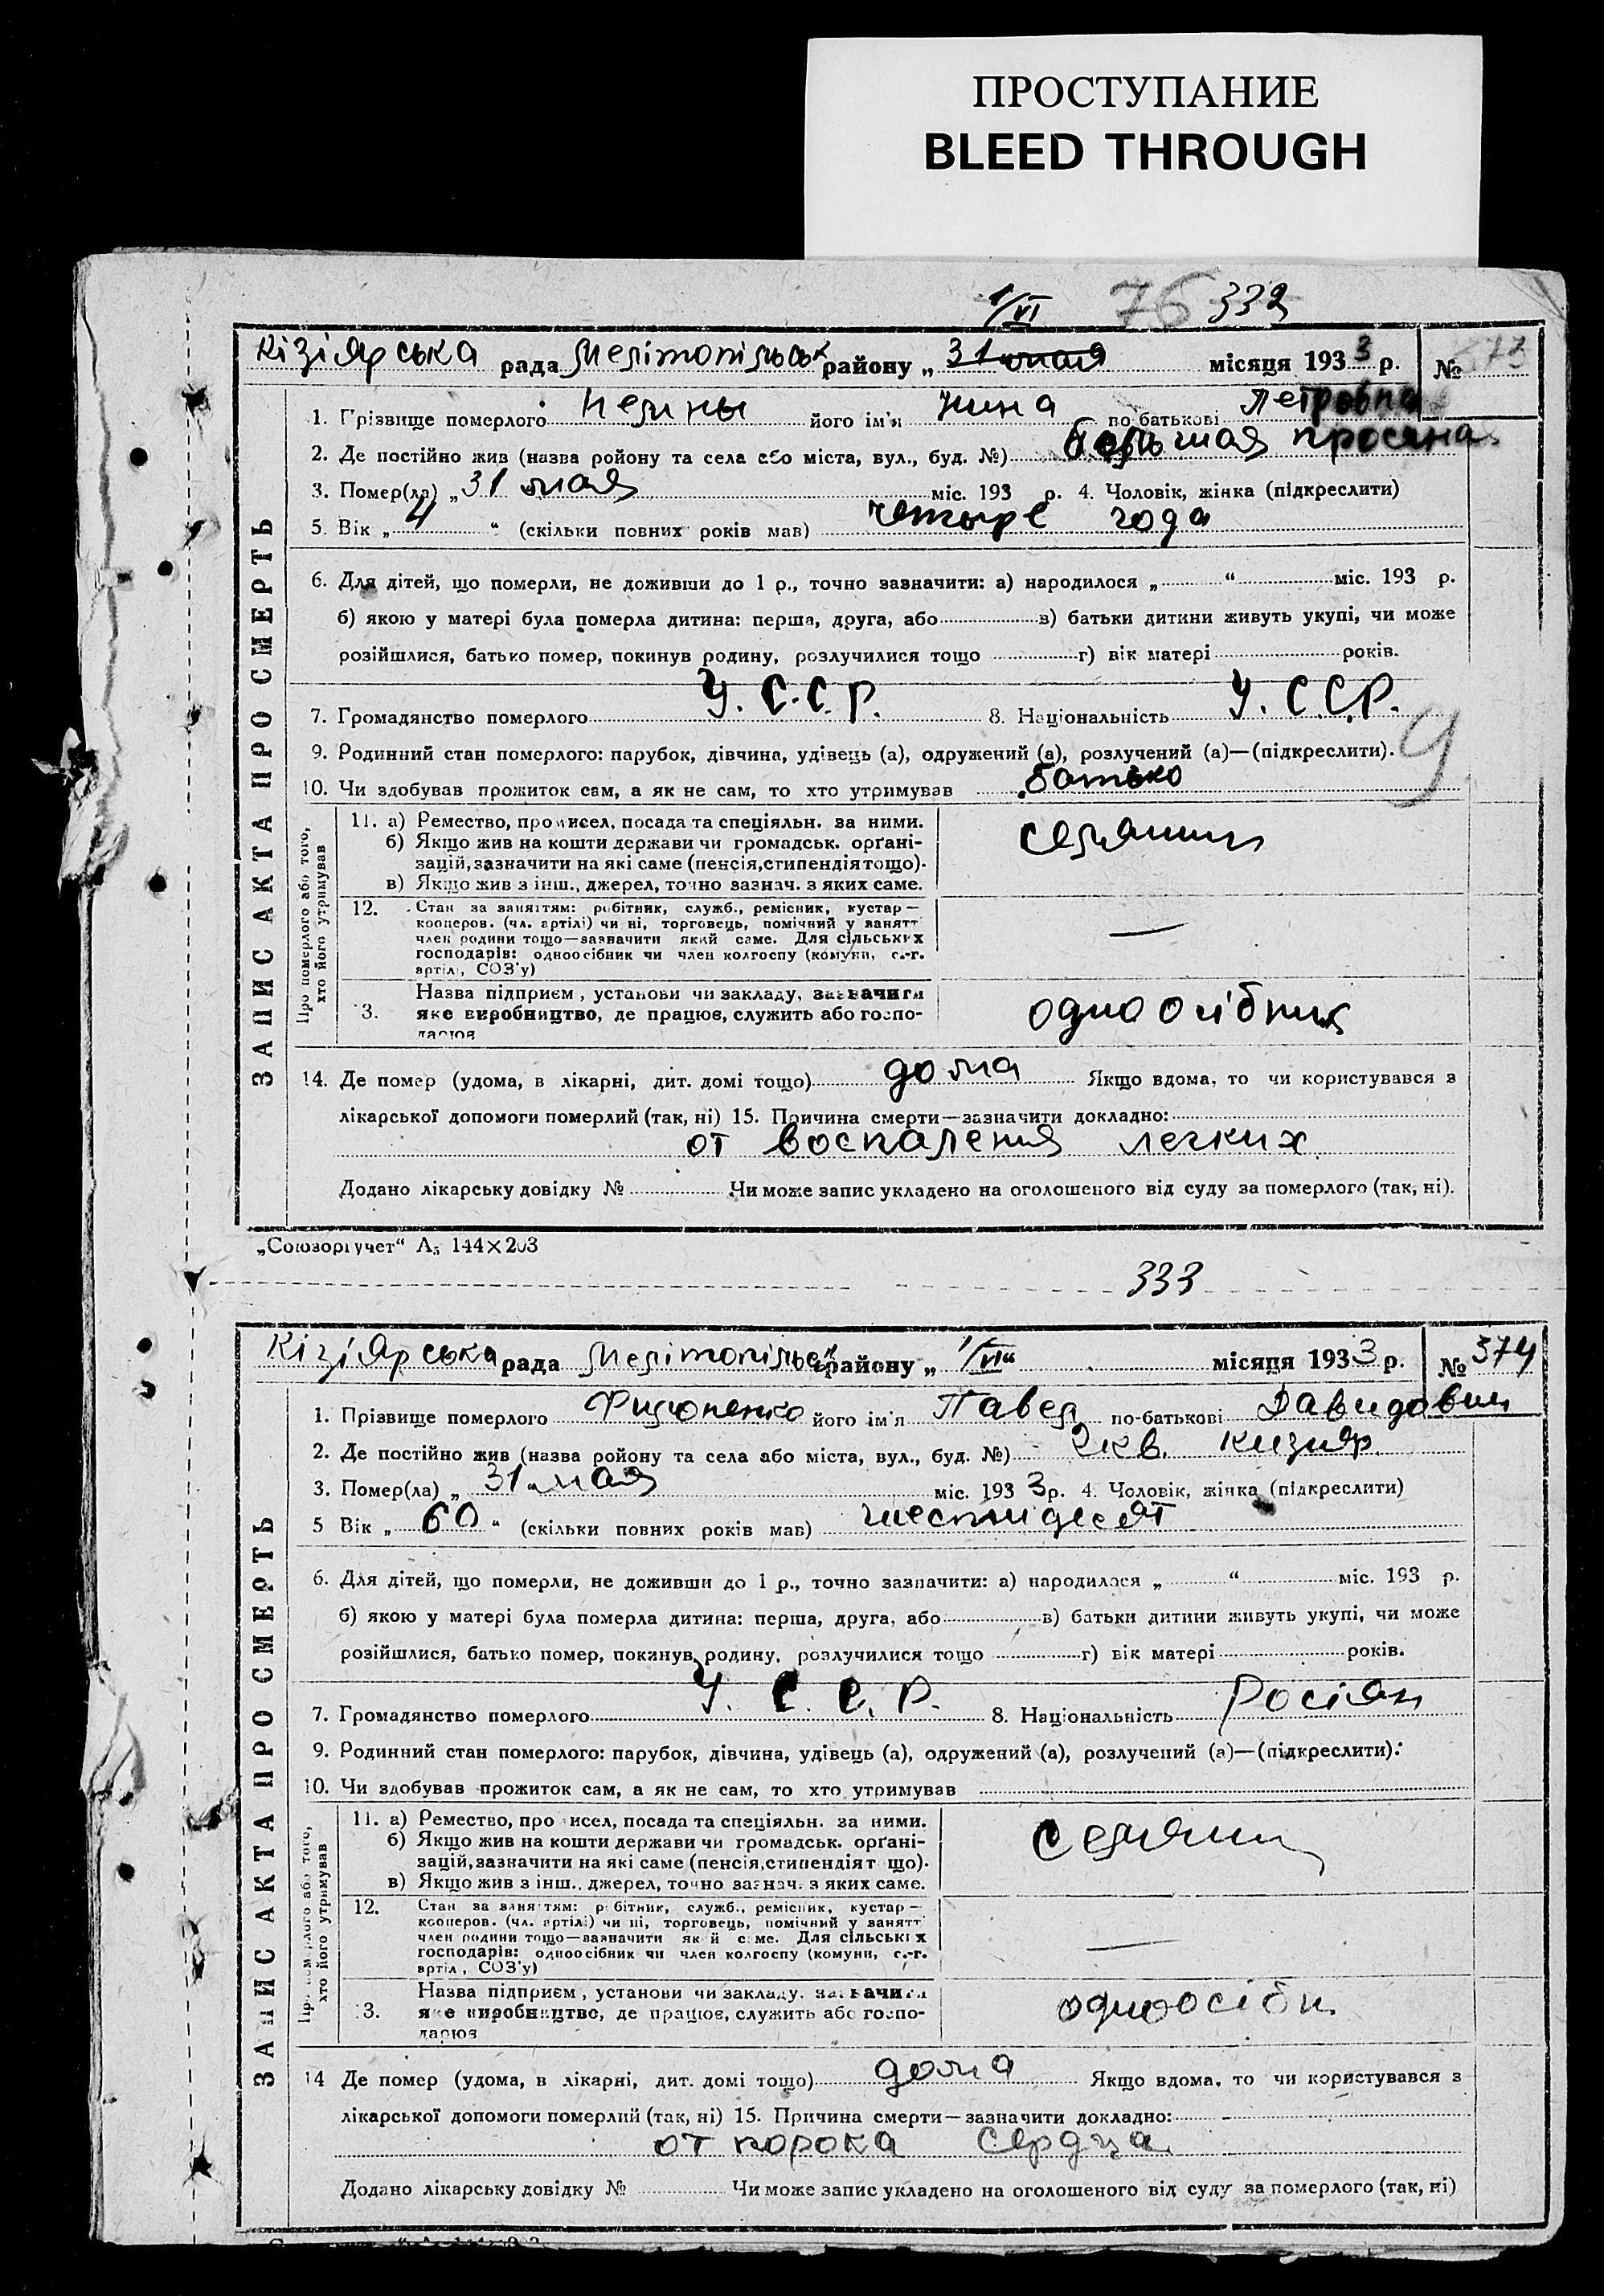 ПРОСТУПАНИЕ
BLEED THROUGH
1/VI 76 332
Кізіярська рада Мелітопільськ району „ 31 мая місяця 1933 р. № 373
1. Прізвище померлого його ім'я Нина по батькові Петровна
2. Де постійно жив (назва району та села або міста, вул., буд. №)
3. Помер(ла) „31 мая міс. 193 р. 4. Чоловік, жінка (підкреслити)
5. Вік „ 4 “ (скільки повних років мав) четыре года
6. Для дітей, що померли, не доживши до 1 р., точно зазначити: а) народилося „ “ міс. 193 р.
б) якою у матері була померла дитина: перша, друга, або в) батьки дитини живуть укупі, чи може
розійшлися, батько помер, покинув родину, розлучилися тощо г) вік матері років.
7. Громадянство померлого У.С.С.Р. 8. Національність У.С.С.Р.
9. Родинний стан померлого: парубок, дівчина, удівець (а), одружений (а), розлучений (а)—(підкреслити). 9
10. Чи здобував прожиток сам, а як не сам, то хто утримував батько
ЗАПИС АКТА ПРО СМЕРТЬ
Про померлого або того, хто його утримував
11. а) Ремество, промисел, посада та спеціяльн. за ними. селянин
б) Якщо жив на кошти держави чи громадськ. орґані-
зацій, зазначити на які саме (пенсія, стипендія тощо).
в) Якщо жив з інш., джерел, точно зазнач. з яких саме.
12. Стан за заняттям: робітник, служб., ремісник, кустар—
кооперов. (чл. артілі) чи ні, торговець, помічний у занятт
член родини тощо—зазначити який саме. Для сільських
господарів: одноосібник чи член колгоспу (комуни, с.-г.
артілі, СОЗ'у) —
13. Назва підприєм, установи чи закладу, зазначити
яке виробництво, де працює, служить або госпо-
дарює одноосібник
14. Де помер (удома, в лікарні, дит. домі тощо) дома Якщо вдома, то чи користувався з
лікарської допомоги померлий (так, ні) 15. Причина смерти—зазначити докладно:
от воспаления легких
Додано лікарську довідку № Чи може запис укладено на оголошеного від суду за померлого (так, ні).
„Союзоргучет“ А5 144×203
333
Кізіярська рада Мелітопільськ району „ 1/VI“ місяця 1933 р. № 374
1. Прізвище померлого його ім'я Павел по-батькові Давидович
2. Де постійно жив (назва району та села або міста, вул., буд. №) 2 кв. Кизияр
3. Помер(ла) „ 31 “ мая міс. 1933 р. 4. Чоловік, жінка (підкреслити)
5 Вік „ 60 “ (скільки повних років мав) шестидесят
6. Для дітей, що померли, не доживши до 1 р., точно зазначити: а) народилося „ “ міс. 193 р.
б) якою у матері була померла дитина: перша, друга, або в) батьки дитини живуть укупі, чи може
розійшлися, батько помер, покинув родину, розлучилися тощо г) вік матері років.
7. Громадянство померлого У.С.С.Р. 8. Національність Росіян
9. Родинний стан померлого: парубок, дівчина, удівець (а), одружений (а), розлучений (а)—(підкреслити).
10. Чи здобував прожиток сам, а як не сам, то хто утримував
ЗАПИС АКТА ПРО СМЕРТЬ
Про померлого або того, хто його утримував
11. а) Ремество, промисел, посада та спеціяльн. за ними. селянин
б) Якщо жив на кошти держави чи громадськ. орґані-
зацій, зазначити на які саме (пенсія, стипендія тощо).
в) Якщо жив з інш., джерел, точно зазнач. з яких саме.
12. Стан за заняттям: робітник, служб., ремісник, кустар—
кооперов. (чл. артілі) чи ні, торговець, помічний у занятт
член родини тощо—зазначити який саме. Для сільських
господарів: одноосібник чи член колгоспу (комуни, с.-г.
артіл, СОЗ'у) —
13. Назва підприєм, установи чи закладу, зазначити
яке виробництво, де працює, служить або госпо-
дарює одноосібн
14 Де помер (удома, в лікарні, дит. домі тощо) дома Якщо вдома, то чи користувався з
лікарської допомоги померлий (так, ні) 15. Причина смерти—зазначити докладно:
от порока сердца
Додано лікарську довідку № Чи може запис укладено на оголошеного від суду за померлого (так, ні)